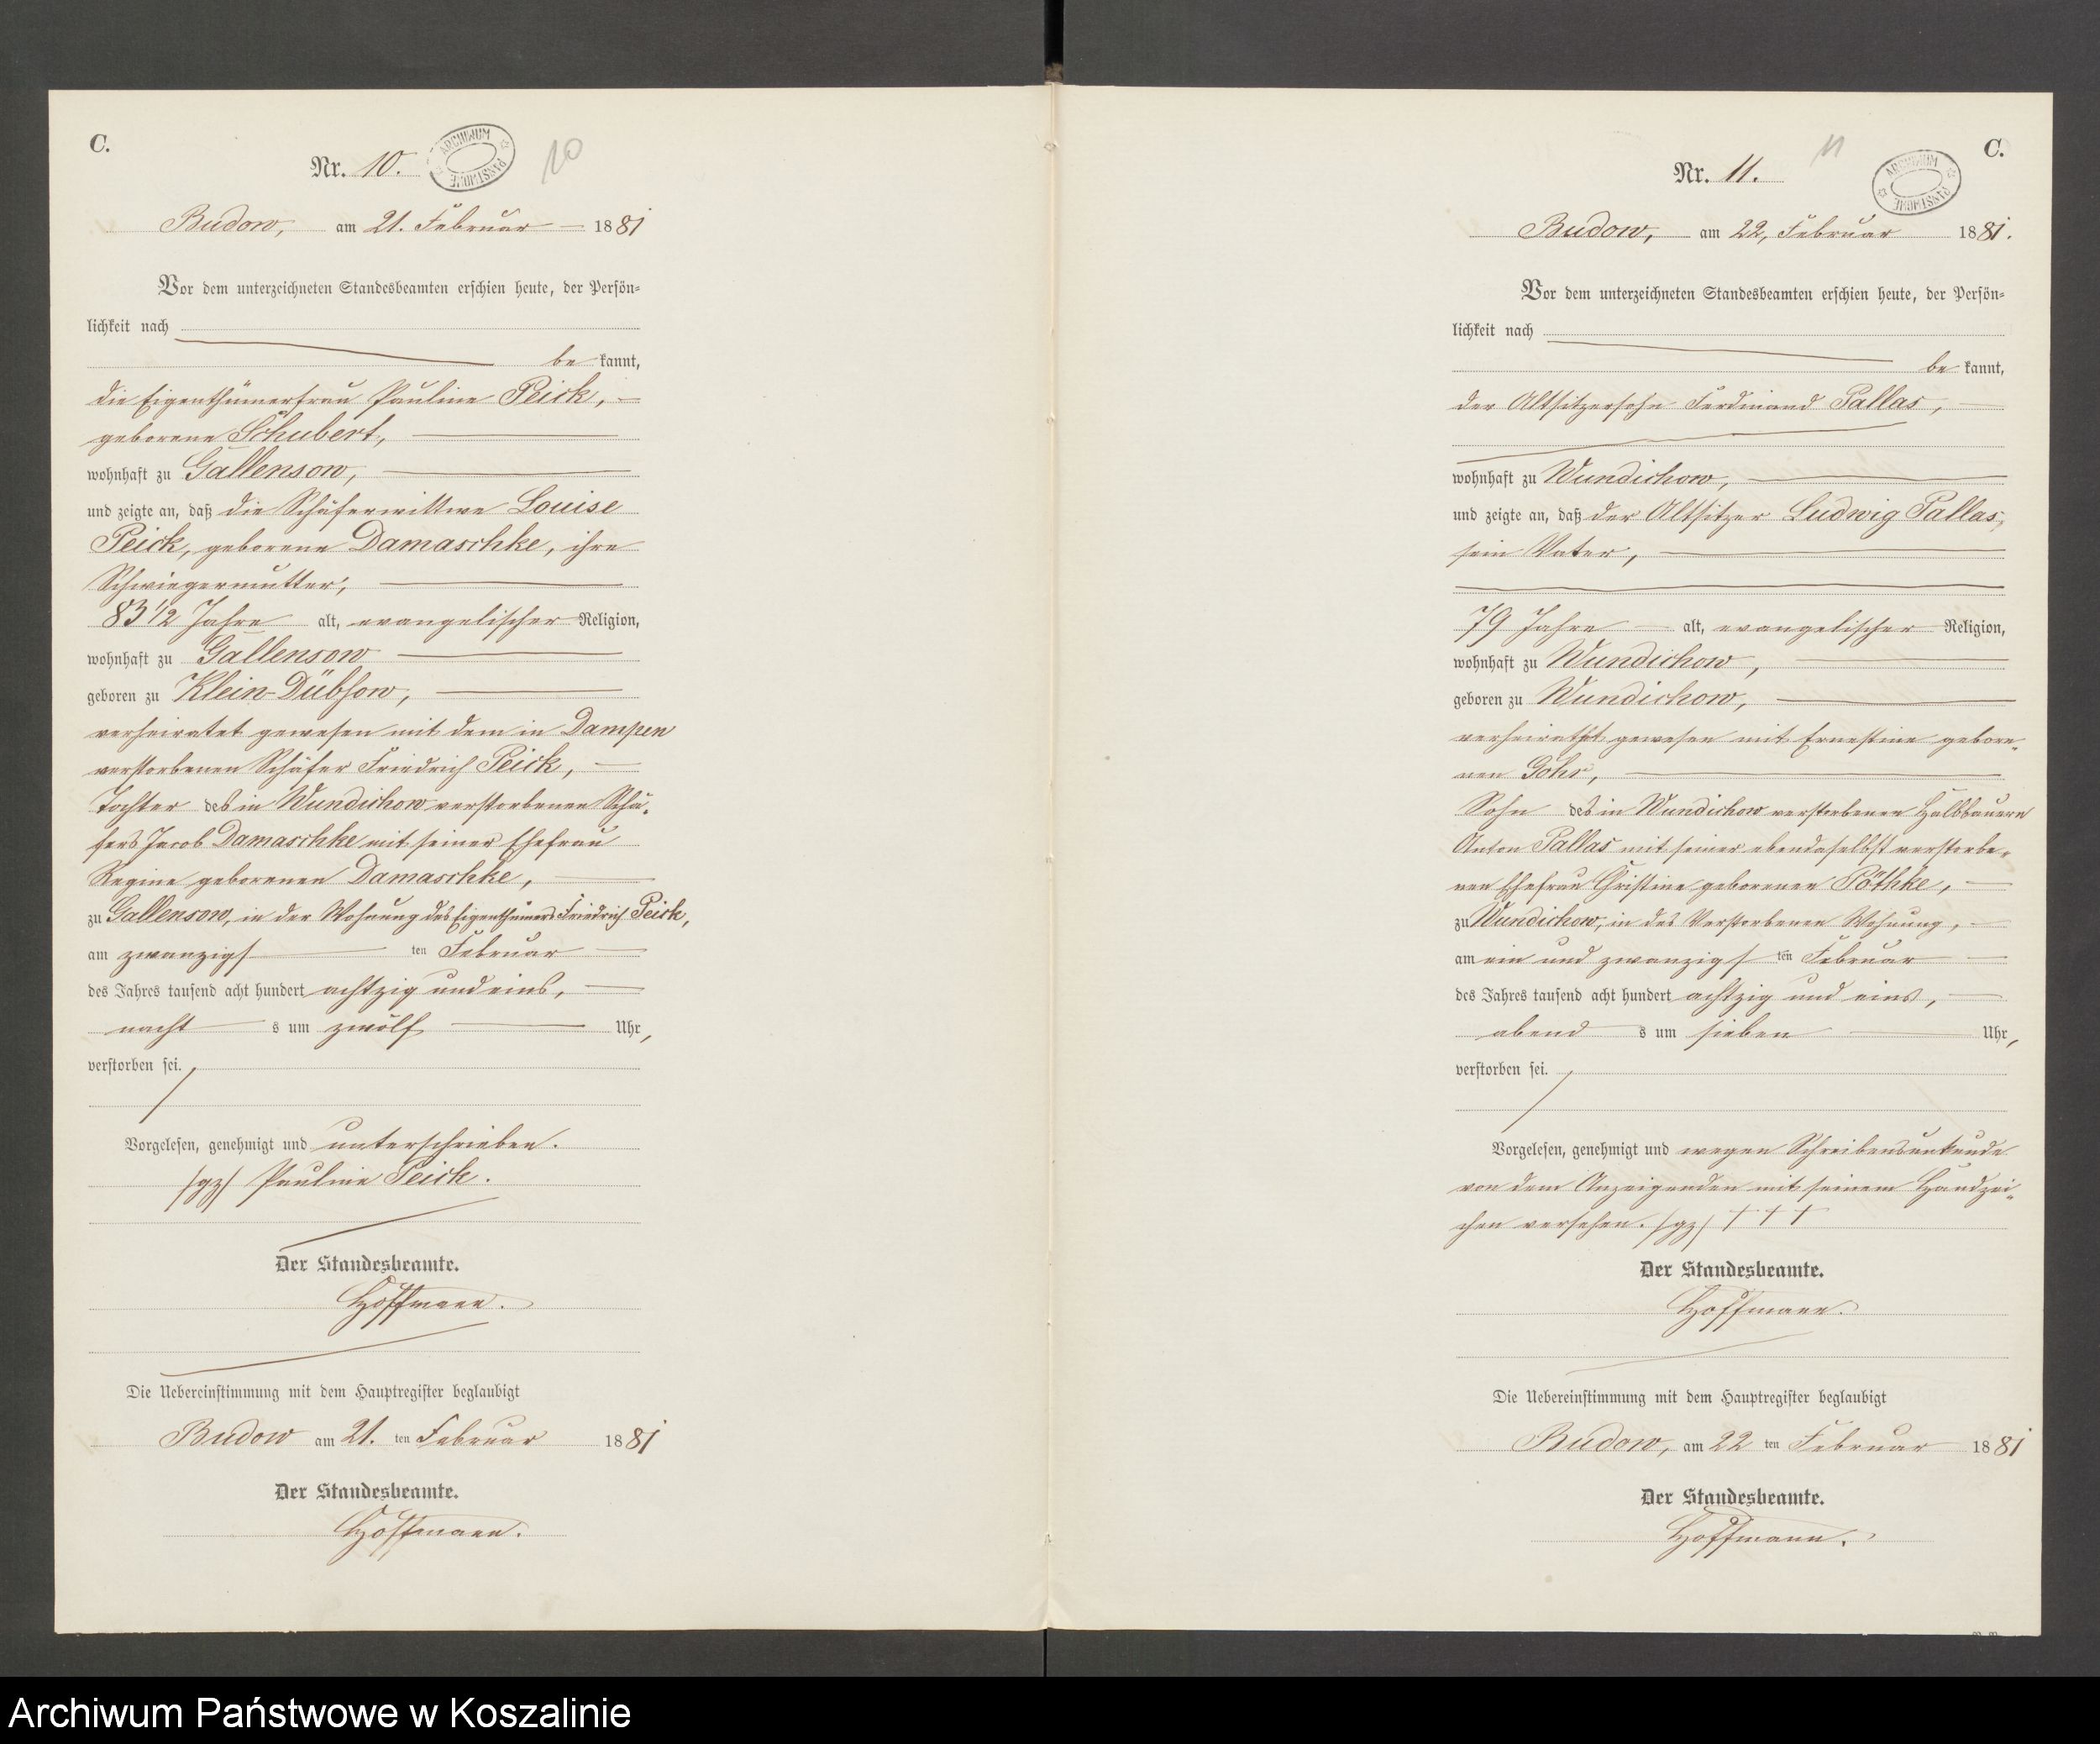 C.
Nr. 10.
ARCHIWUM
PAŃSTWOWE
10
Budow, am 21. Februar 1881
Vor dem unterzeichneten Standesbeamten erschien heute, der Persön=
lichkeit nach
be kannt,
die Eigenthümerfrau Pauline Peick,
geborene Schubert,
wohnhaft zu Gallensow,
und zeigte an, daß die Schäferwittwe Louise
Peick, geborene Damaschke, ihre
Schwiegermutter,
83 1/2 Jahre alt, evangelischer Religion,
wohnhaft zu Gallensow
geboren zu Klein-Dübsow,
verheiratet gewesen mit dem in Dampen
verstorbenen Schäfer Friedrich Peick,
Tochter des in Wundichow verstorbenen Schä-
fers Jacob Damaschke mit seiner Ehefrau
Regine geborenen Damaschke,
zu Gallensow, in der Wohnung des Eigenthümers Friedrich Peick,
am zwanzigs ten Februar
des Jahres tausend acht hundert achtzig und eins,
nacht s um zwölf Uhr,
verstorben sei.
Vorgelesen, genehmigt und unterschrieben.
/gz/ Pauline Peick.
Der Standesbeamte.
Hoffmann.
Die Uebereinstimmung mit dem Hauptregister beglaubigt
Budow am 21. ten Februar 1881
Der Standesbeamte.
Hoffmann.
C.
Nr. 11.
11
ARCHIWUM
PAŃSTWOWE
Budow, am 22, Februar 1881.
Vor dem unterzeichneten Standesbeamten erschien heute, der Persön=
lichkeit nach
be kannt,
der Altsitzersohn Ferdinand Pallas,
wohnhaft zu Wundichow,
und zeigte an, daß der Altsitzer Ludwig Pallas,
sein Vater,
79 Jahre alt, evangelischer Religion,
wohnhaft zu Wundichow,
geboren zu Wundichow,
verheirathet gewesen mit Ernestine gebore-
nen Gohr,
Sohn des in Wundichow verstorbenen Halbbauern
Anton Pallas mit seiner ebendaselbst verstorbe-
nen Ehefrau Christine geborenen Pöthke,
zu Wundichow, in des Verstorbenen Wohnung,
am ein und zwanzigs ten Februar
des Jahres tausend acht hundert achtzig und eins,
abend s um sieben Uhr,
verstorben sei.
Vorgelesen, genehmigt und wegen Schreibensunkunde
von dem Anzeigenden mit seinem Handzei-
chen versehen. /gz/ + + +
Der Standesbeamte.
Hoffmann.
Die Uebereinstimmung mit dem Hauptregister beglaubigt
Budow, am 22 ten Februar 1881
Der Standesbeamte.
Hoffmann.
Archiwum Państwowe w Koszalinie